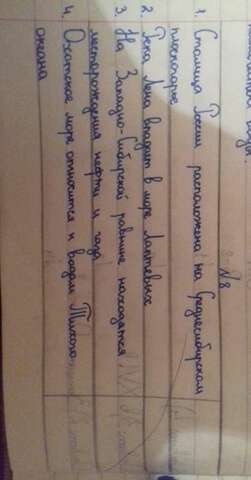 N8
1. Столица России расположена на Среднесибирском
плоскогорье
2. Река Лена впадает в море Лаптевых
3. На Западно-Сибирской равнине находятся
месторождения нефти и газа
4. Охотское море относится к водам Тихого
океана